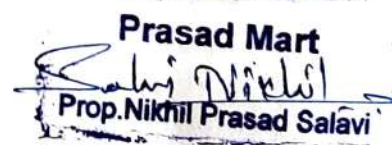 Prasad Mart
Salvi Nikhil
Prop.Nikhil Prasad Salavi